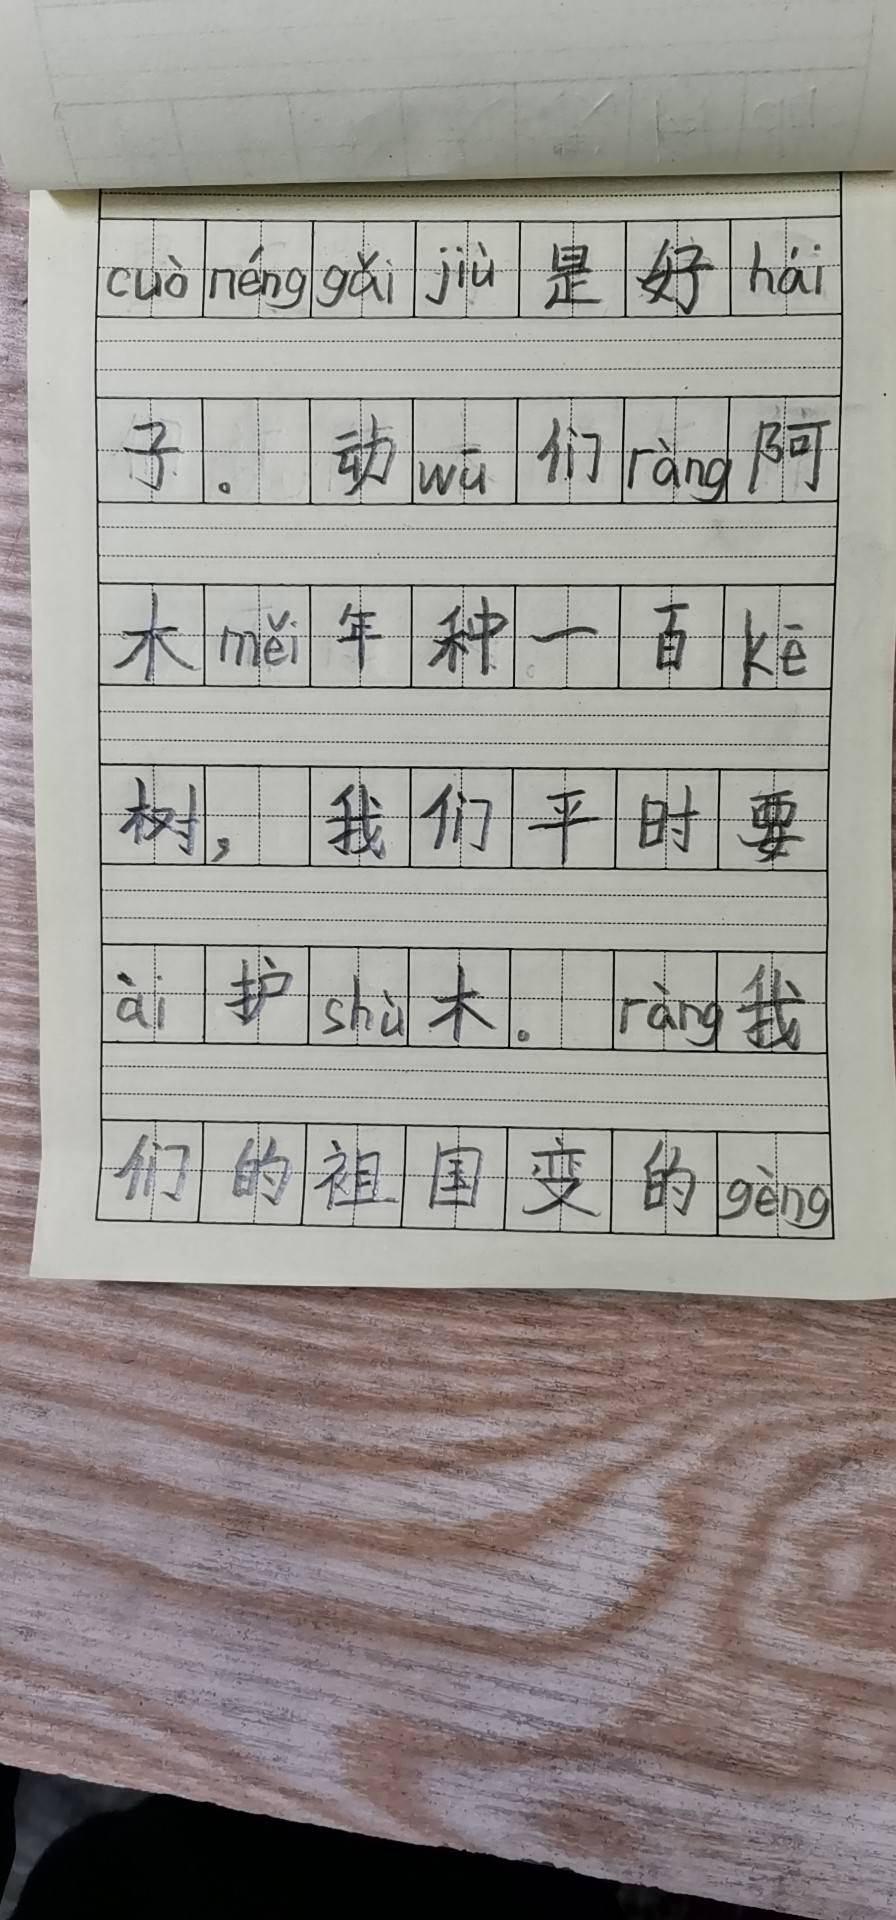 cuò néng gǎi jiù 是好 hái
子。动 wū 们 ràng 阿
木 měi 年种一百 kē
树，我们平时要
ài 护 shù 木。ràng 我
们的祖国变的 gèng